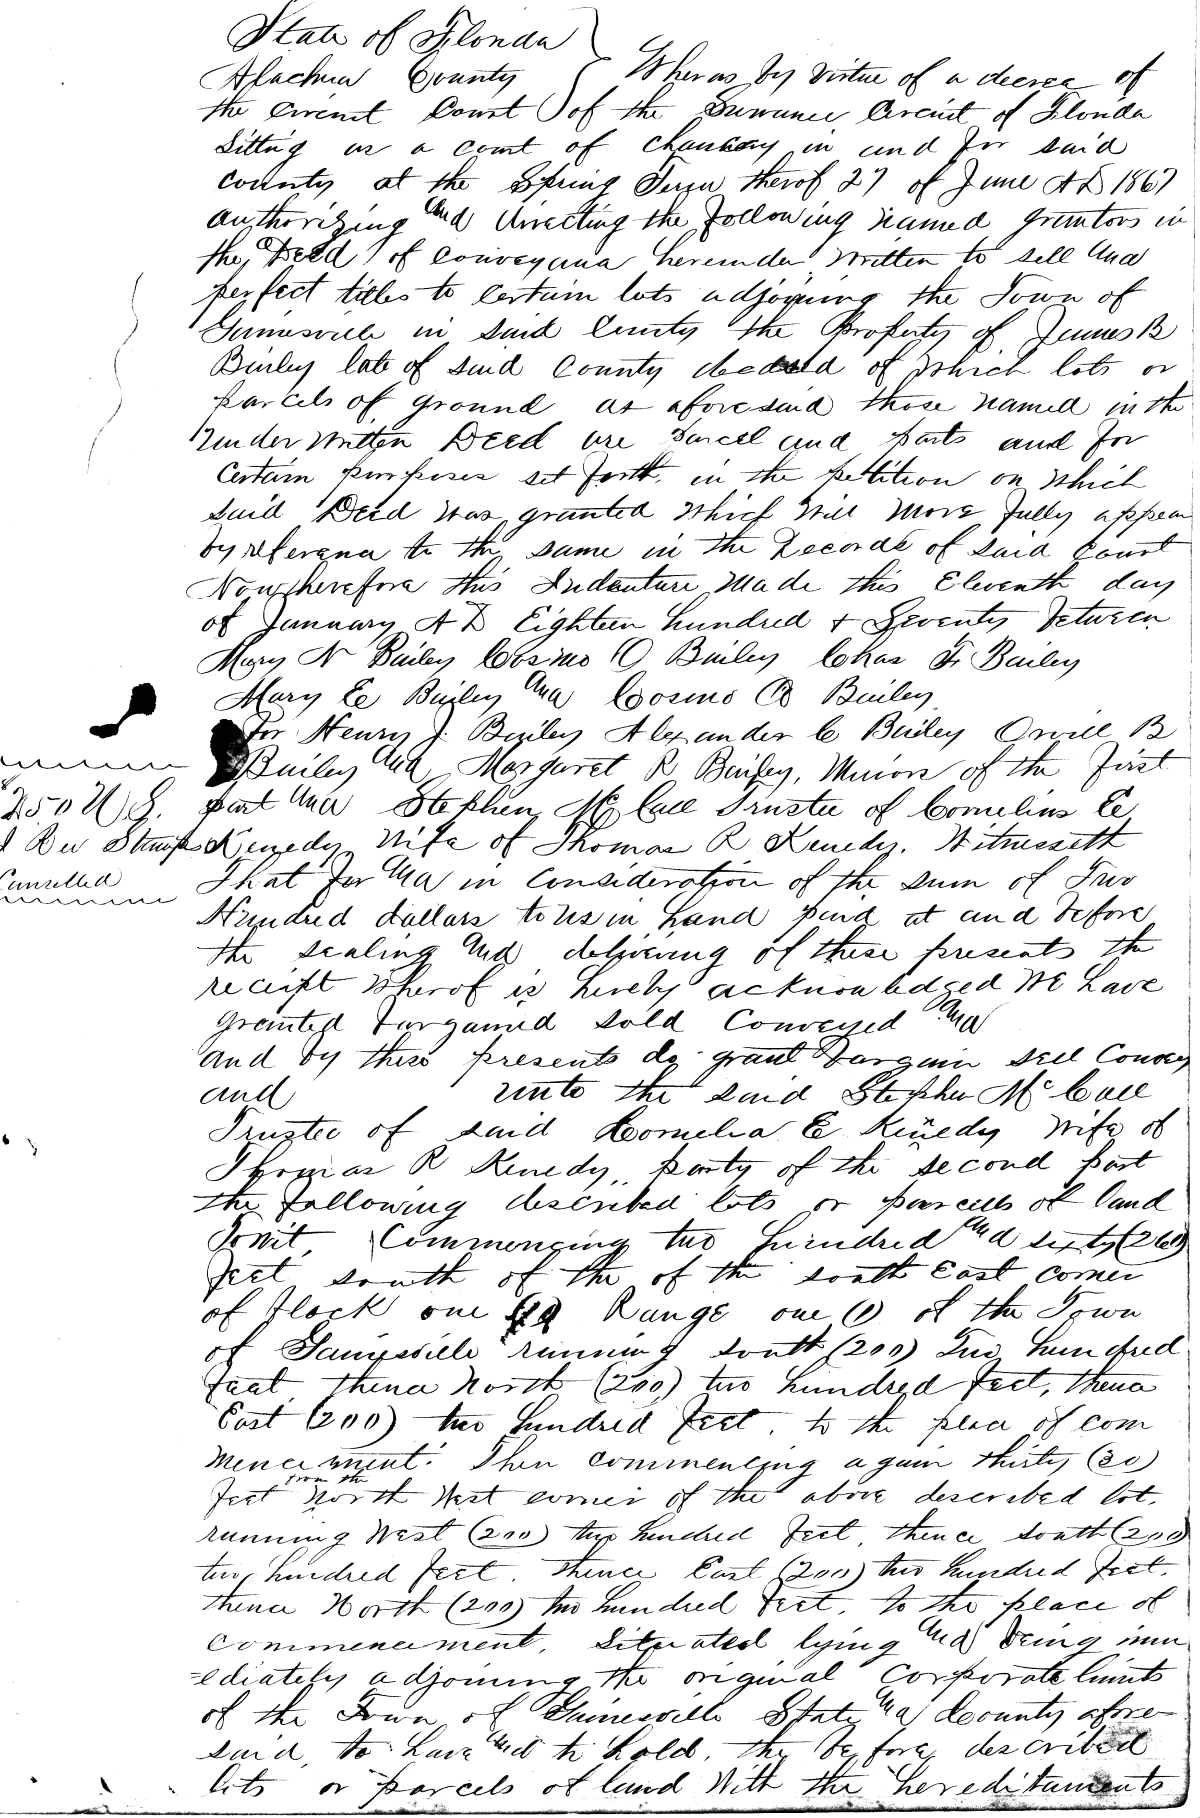 State of Florida
Alachua County } Wheras by virtue of a decree of
the Circuit Court of the Suwanee Circuit of Florida
Sitting as a court of chancery in and for said
county at the Spring Term therof 27 of June AD 1867
authorizing and directing the following named grantors in
the Deed of Conveyana hereunder written to sell and
perfect titles to certain lots adjoining the Town of
Gainesville in said County the Property of James B
Bailey late of said County deceased of which lots or
parcels of ground as aforesaid those named in the
under written Deed are parcel and parts and for
Certain purposes set forth in the petition on which
said Deed was granted which will more fully appear
by referena to the same in the Records of said Court
Now therefore this Indenture Made this Eleventh day
of January AD Eighteen hundred & Seventy between
Mary N Bailey Cosmo O Bailey Chas F Bailey
Mary E Bailey and Cosmo O Bailey
for Henry J. Bailey Alexander C Bailey Orvill B
Bailey and Margaret R Bailey, Minors of the first
part and Stephen McCall Trustee of Cornelius E
Kenedy wife of Thomas R Kenedy. Witnesseth
250 U.S.
Rev Stamps
Cancelled
That for and in consideration of the sum of Two
Hundred dollars to us in hand paid at and before
the sealing and delivering of these presents the
receipt wherof is hereby acknowledged We have
Granted bargained sold Conveyed and
and by these presents do grant bargain sell Convey
and unto the said Stephen McCall
Trustee of said Cornelia E Kenedy wife of
Thomas R Kenedy, party of the second part
the following described lots or parcells of land
Towit, Commencing two hundred and sixty (260)
feet south of the of the south East corner
of Block one (1) Range one (1) of the Town
of Gainesville running south (200) Two hundred
feet, thence North (200) two hundred feet, thence
East (200) two hundred feet. to the place of com
mencement. Then commencing again thirty (30)
feet from the North West corner of the above described lot.
running West (200) two hundred feet, thence south (200)
two hundred feet. thence East (200) two hundred feet.
thence North (200) two hundred feet. to the place of
commencement. Situated lying and being imm
=ediately adjoining the original corporate limits
of the Town of Gainesville State and County afore-
said, to have and to hold. the before described
lots or parcels of land With the hereditaments